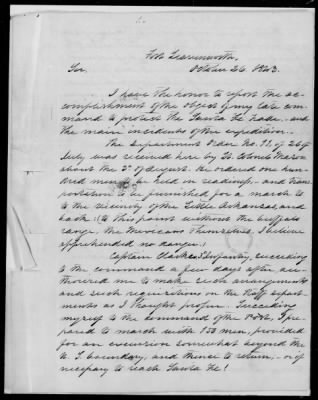 Fort Leavenworth,
October 26. 1843.
Sir,
I have the honor to report the ac-
complishment of the object of my late com-
mand to protect the Santa Fe trade,- and
the main incidents of the expedition.
The Department Order No. 11. of 26th
July was received here by Lt. Colonel Mason
about the 3d of August. He ordered one hun-
dred men to be held in readiness, and trans-
portation to be furnished for a march to
to the vicinity of the Little Arkansas, and
back! (to this point without the buffalo
range, the Mexicans themselves, I believe
apprehended no danger.)
Captain Clarke 6 Infantry, succeeding
to the command a few days after au-
thorized me to make such arrangements
and such requisition on the Staff depart-
ments as I thought proper. Succeeding
myself to the command of the Post, I pre-
pared to march with 150 men, provided
for an excursion somewhat beyond the
U. S. boundary, and thence to return,- or if
necessary to reach Santa Fe!